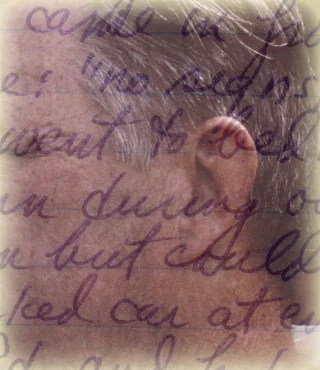 came in fro
e: "no signs
went to bed.
in during o
n but could
ked car at e